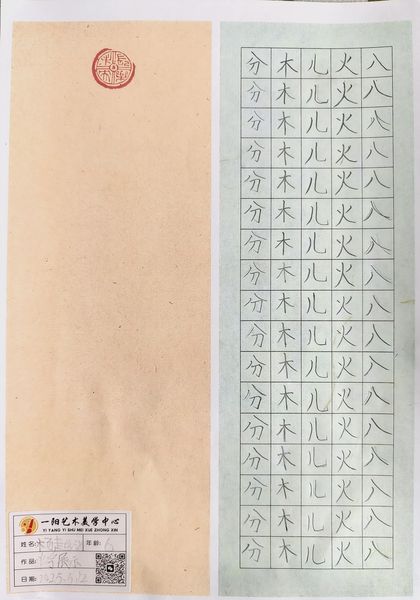 八八八八八八八八八八八八八八八八八
火火火火火火火火火火火火火火火火火
儿儿儿儿儿儿儿儿儿儿儿儿儿儿儿儿儿
木木木木木木木木木木木木木木木木木
分分分分分分分分分分分分分分分分分
一阳艺术美学中心
YI YANG YI SHU MEI XUE ZHONG XIN
姓名: 年龄:
作品:
日期: